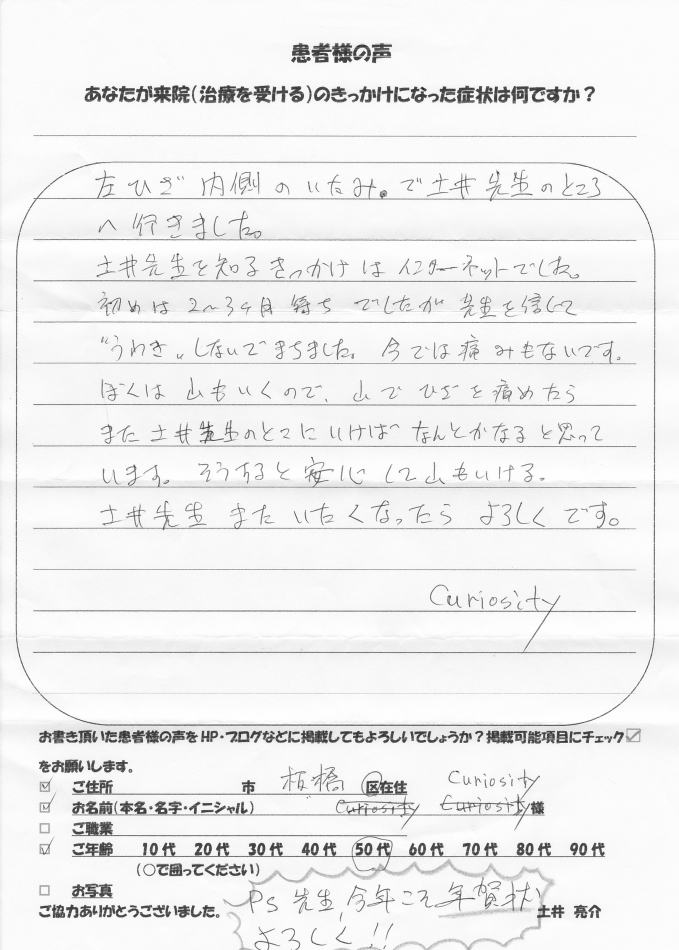 患者様の声
あなたが来院(治療を受ける)のきっかけになった症状は何ですか?
左ひざ 内側 の いたみ。で土井先生のところ
へ行きました。
土井先生を知るきっかけは インターネットでした。
初めは 2〜3ヶ月 待ち でしたが 先生を信じて
"うわき„ しないでまちました。 今では 痛みもないです。
ぼくは 山もいくので、山で ひざを痛めたら
また 土井先生のとこに いけば なんとかなる と思って
います。 そうすると 安心して山もいける。
土井先生 また いたくなったら よろしくです。
Curiosity
お書き頂いた患者様の声をHP・ブログなどに掲載してもよろしいでしょうか?掲載可能項目にチェック☑
をお願いします。
☑ ご住所 市 板橋 区在住
☑ お名前(本名・名字・イニシャル) Curiosity Curiosity Curiosity 様
□ ご職業
☑ ご年齢 10代 20代 30代 40代 50代 60代 70代 80代 90代
(○で囲ってください)
□ お写真
ご協力ありがとうございました。 土井 亮介
PS 先生、今年こそ 年賀状
よろしく!!